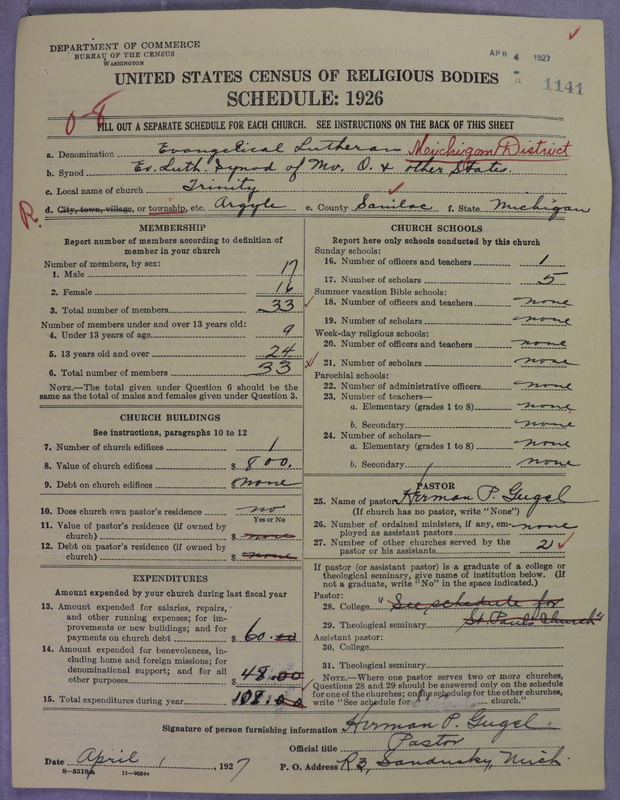 DEPARTMENT OF COMMERCE
BUREAU OF THE CENSUS
WASHINGTON
APR 4 1927
1141
UNITED STATES CENSUS OF RELIGIOUS BODIES
SCHEDULE: 1926
0-8
FILL OUT A SEPARATE SCHEDULE FOR EACH CHURCH. SEE INSTRUCTIONS ON THE BACK OF THIS SHEET
a. Denomination Evangelical Lutheran Michigan District
b. Synod Ev. Luth. Synod of Mo. O. & other States.
c. Local name of church Trinity
R.
d. City, town, village, or township, etc. Argyle e. County Sanilac f. State Michigan
MEMBERSHIP
Report number of members according to definition of member in your church
Number of members, by sex:
1. Male 17
2. Female 16
3. Total number of members 33
Number of members under and over 13 years old:
4. Under 13 years of age 9
5. 13 years old and over 24
6. Total number of members 33
NOTE.—The total given under Question 6 should be the same as the total of males and females given under Question 3.
CHURCH BUILDINGS
See instructions, paragraphs 10 to 12
7. Number of church edifices 1
8. Value of church edifices $800.
9. Debt on church edifices $none
10. Does church own pastor's residence no
Yes or No
11. Value of pastor's residence (if owned by church) $none
12. Debt on pastor's residence (if owned by church) $none
EXPENDITURES
Amount expended by your church during last fiscal year
13. Amount expended for salaries, repairs, and other running expenses; for improvements or new buildings; and for payments on church debt $60.00
14. Amount expended for benevolences, including home and foreign missions; for denominational support; and for all other purposes 48.00
15. Total expenditures during year 108.00
CHURCH SCHOOLS
Report here only schools conducted by this church
Sunday schools:
16. Number of officers and teachers 1
17. Number of scholars 5
Summer vacation Bible schools:
18. Number of officers and teachers none
19. Number of scholars none
Week-day religious schools:
20. Number of officers and teachers none
21. Number of scholars none
Parochial schools:
22. Number of administrative officers none
23. Number of teachers—
a. Elementary (grades 1 to 8) none
b. Secondary none
24. Number of scholars—
a. Elementary (grades 1 to 8) none
b. Secondary none
PASTOR
25. Name of pastor Herman P. Gugel
(If church has no pastor, write "None")
26. Number of ordained ministers, if any, employed as assistant pastors none
27. Number of other churches served by the pastor or his assistants 2
If pastor (or assistant pastor) is a graduate of a college or theological seminary, give name of institution below. (If not a graduate, write "No" in the space indicated.)
Pastor:
28. College "See schedule for
29. Theological seminary St. Paul's Church"
Assistant pastor:
30. College
31. Theological seminary
NOTE.—Where one pastor serves two or more churches, Questions 28 and 29 should be answered only on the schedule for one of the churches; on the schedules for the other churches, write "See schedule for church."
Signature of person furnishing information Herman P. Gugel.
Official title Pastor
Date April 1, 1927 P. O. Address R3, Sandusky, Mich.
8—5518a 11—9054